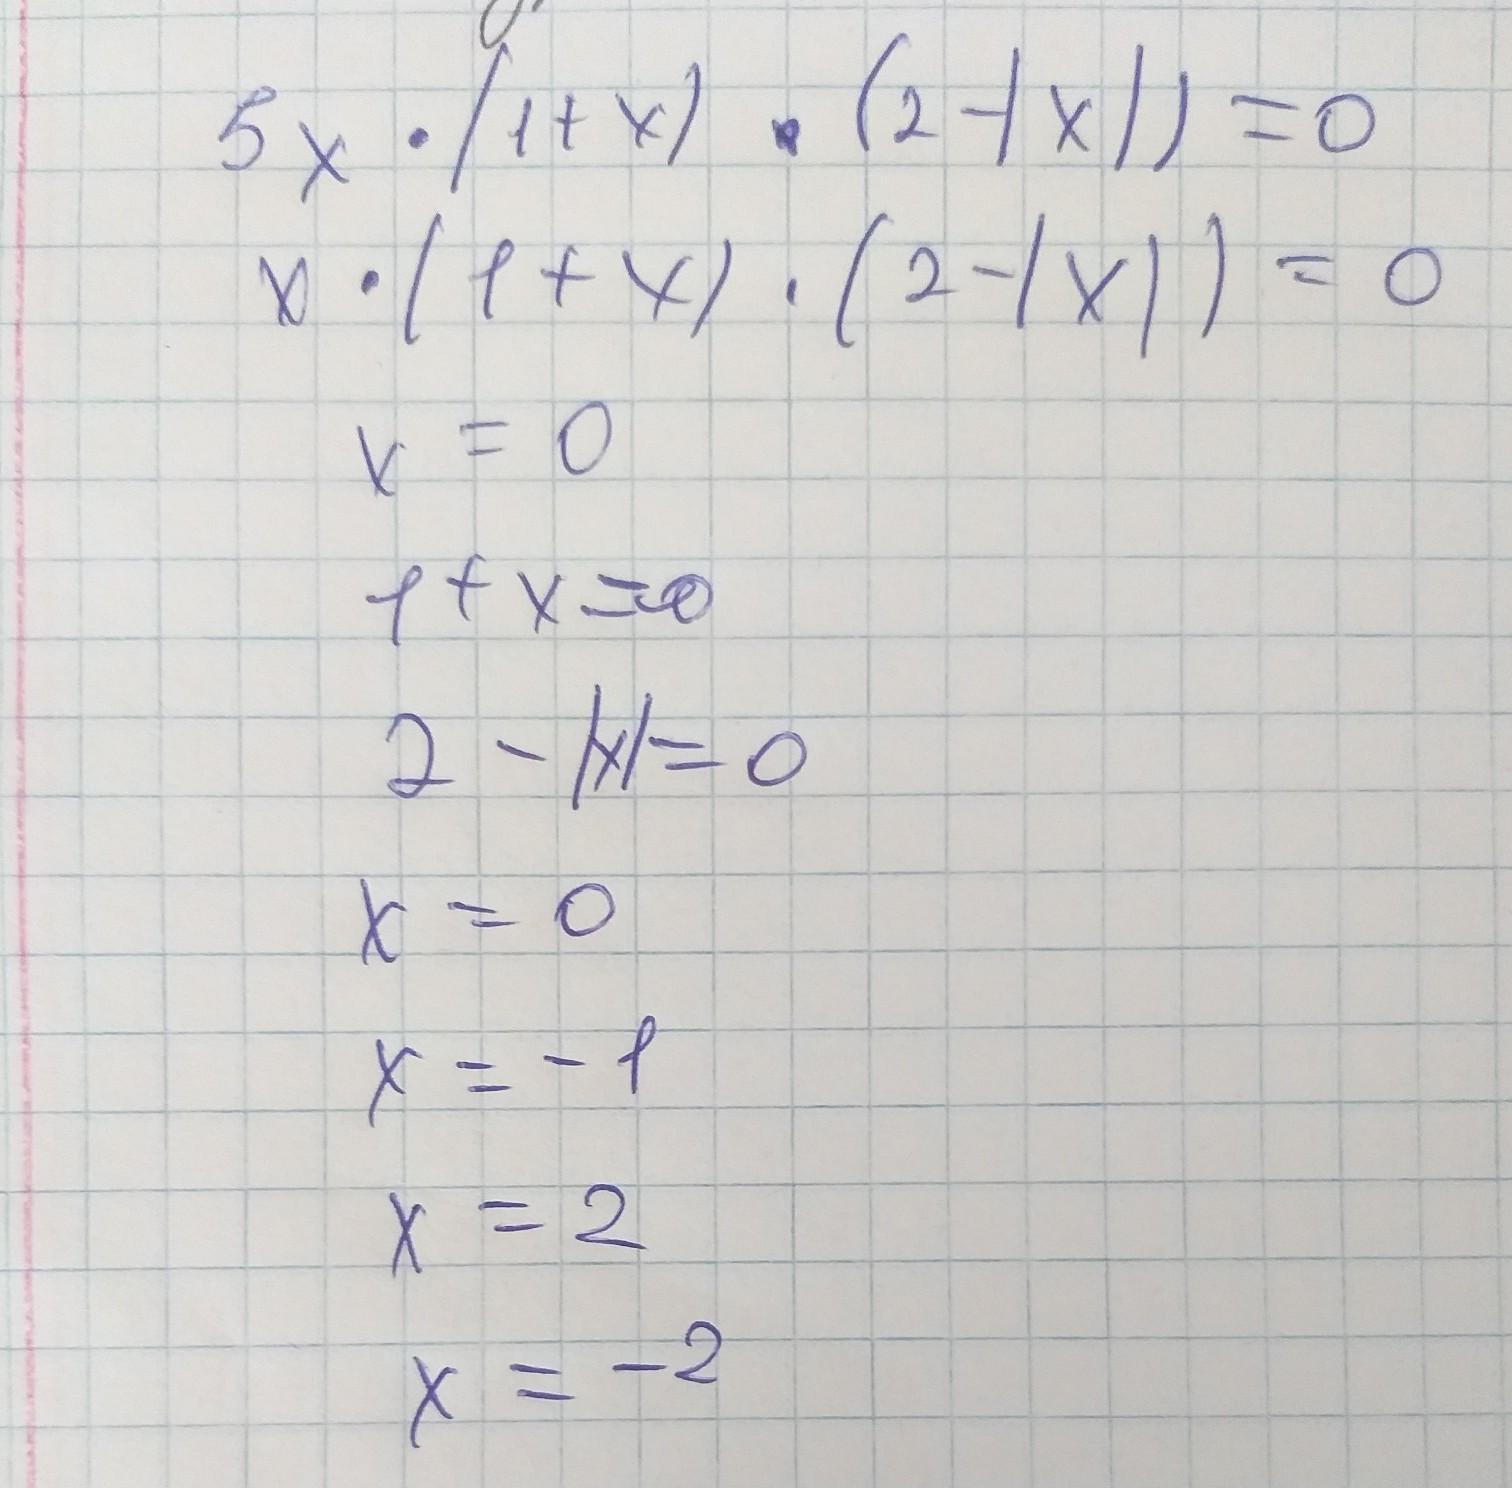 5x · (1 + x) · (2 - |x|) = 0
x · (1 + x) · (2 - |x|) = 0
x = 0
1 + x = 0
2 - |x| = 0
x = 0
x = - 1
x = 2
x = - 2